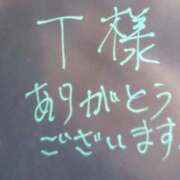 T様
ありがとう
ございます。